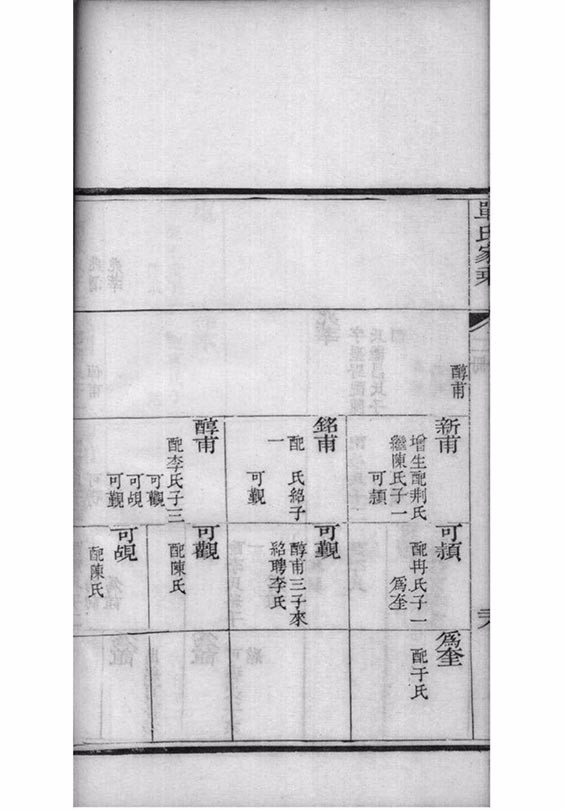 單氏家乘
二冊
醇甫
新甫
增生配荆氏
繼陳氏子一
可
銘甫
配 氏紹子
一
可覲
醇甫
配李氏子三
可觀
可
可覲
可
配冉氏子一
爲奎
可覲
醇甫三子來
紹聘李氏
可觀
配陳氏
可
配陳氏
爲奎
配于氏